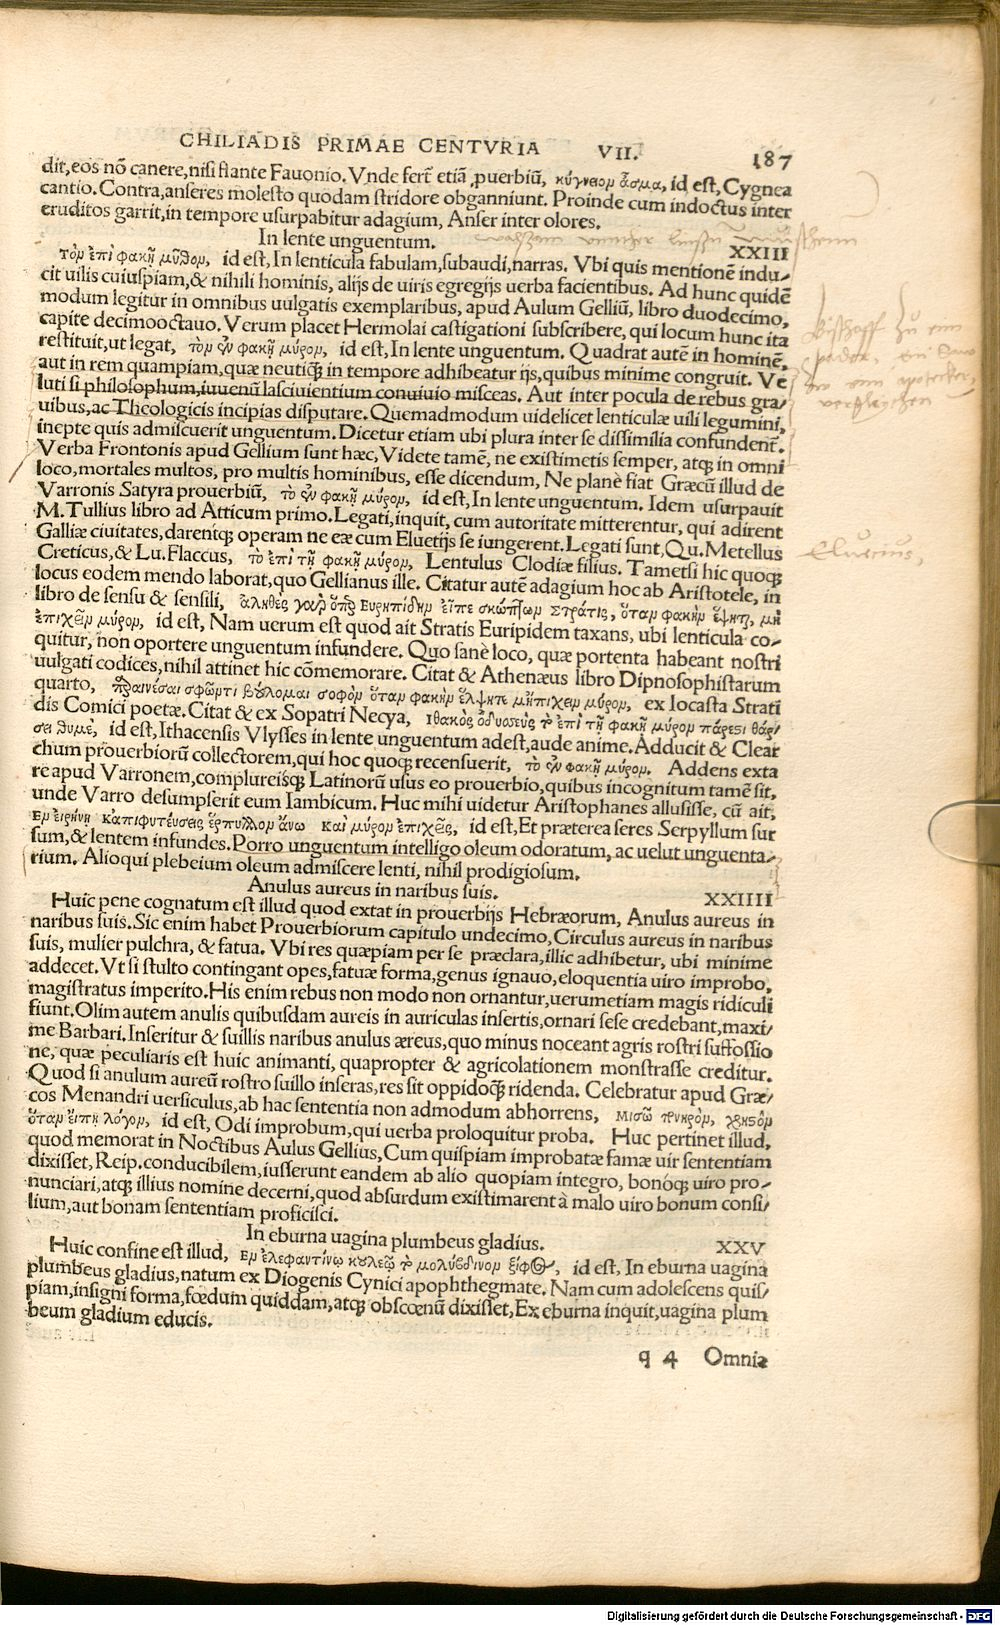 CHILIADIS PRIMAE CENTVRIA VII. 187
dit, eos nõ canere, nisi flante Fauonio. Vnde fert̃ etiã ꝓuerbiũ, κύγνειομ ᾆσμα, id est, Cygnea
cantio. Contra, anseres molesto quodam stridore obganniunt. Proinde cum indoctus inter
eruditos garrit, in tempore usurpabitur adagium, Anser inter olores.
In lente unguentum. XXIII
τὸμ ἐπὶ φακῇ μῦθομ, id est, In lenticula fabulam, subaudi, narras. Vbi quis mentionẽ indu-
cit uilis cuiuspiam, & nihili hominis, alijs de uiris egregijs uerba facientibus. Ad hunc quidẽ
modum legitur in omnibus uulgatis exemplaribus, apud Aulum Gelliũ, libro duodecimo,
capite decimooctauo. Verum placet Hermolai castigationi subscribere, qui locum hunc ita
restituit, ut legat, τὸμ ἐν φακῇ μύρομ, id est, In lente unguentum. Quadrat autẽ in hominẽ,
aut in rem quampiam, quæ neutiq̃ in tempore adhibeatur ijs, quibus minime congruit. Ve
luti si philosophum, iuuenũ lasciuientium conuiuio misceas. Aut inter pocula de rebus gra/
uibus, ac Theologicis incipias disputare. Quemadmodum uidelicet lenticulæ uili legumini,
inepte quis admiscuerit unguentum. Dicetur etiam ubi plura inter se dissimilia confundent̃.
Verba Frontonis apud Gellium sunt hæc, Videte tamẽ, ne existimetis semper, atq; in omni
loco, mortales multos, pro multis hominibus, esse dicendum, Ne planè fiat Græcũ illud de
Varronis Satyra prouerbiũ, τὸ ἐν φακῇ μύρομ, id est, In lente unguentum. Idem usurpauit
M. Tullius libro ad Atticum primo. Legati, inquit, cum autoritate mitterentur, qui adirent
Galliæ ciuitates, darentq; operam ne eæ cum Eluetijs se iungerent. Legati sunt, Qu. Metellus
Creticus, & Lu. Flaccus, τὸ ἐπὶ τῇ φακῇ μύρομ, Lentulus Clodiæ filius. Tametsi hic quoq;
locus eodem mendo laborat, quo Gellianus ille. Citatur autẽ adagium hoc ab Aristotele, in
libro de sensu & sensili, ἀληθὲς γὰρ ὅπερ Ευρηπίδημ εἶπε σκώπτωμ Στράτις, ὅταμ φακὴμ ἕψητε, μὴ
ἐπιχεῖμ μύρομ, id est, Nam uerum est quod ait Stratis Euripidem taxans, ubi lenticula co-
quitur, non oportere unguentum infundere. Quo sanè loco, quæ portenta habeant nostri
uulgati codices, nihil attinet hic cõmemorare. Citat & Athenæus libro Dipnosophistarum
quarto, παραινέσαι σφῶμ τι βούλομαι σοφὸμ ὅταμ φακὴμ ἕλψητε μὴπιχεῖμ μύρομ, ex Iocasta Strati
dis Comici poetæ. Citat & ex Sopatri Necya, Ιθακὸς ὀδυσσεὺς τὸ ἐπὶ τῇ φακῇ μύρομ πάρεστι θάρ/
σει θυμὲ, id est, Ithacensis Vlysses in lente unguentum adest, aude anime. Adducit & Clear
chum prouerbiorũ collectorem, qui hoc quoq; recensuerit, τὸ ἐν φακῇ μύρομ. Addens exta
re apud Varronem, complureisq̃ Latinorũ usus eo prouerbio, quibus incognitum tamẽ sit,
unde Varro desumpserit eum Iambicum. Huc mihi uidetur Aristophanes allusisse, cũ ait,
Εμ εἰρήνῃ κἀπιφυτέυσεις ἕρπυλλομ ἄνω καὶ μύρομ ἐπιχεῖς, id est, Et præterea seres Serpyllum sur
sum, & lentem infundes. Porro unguentum intelligo oleum odoratum, ac uelut unguenta-
rium. Alioqui plebeium oleum admiscere lenti, nihil prodigiosum.
Anulus aureus in naribus suis. XXIIII
Huic pene cognatum est illud quod extat in prouerbijs Hebræorum, Anulus aureus in
naribus suis. Sic enim habet Prouerbiorum capitulo undecimo, Circulus aureus in naribus
suis, mulier pulchra, & fatua. Vbi res quæpiam per se præclara, illic adhibetur, ubi minime
addecet. Vt si stulto contingant opes, fatuæ forma, genus ignauo, eloquentia uiro improbo,
magistratus imperito. His enim rebus non modo non ornantur, uerumetiam magis ridiculi
fiunt. Olim autem anulis quibusdam aureis in auriculas insertis, ornari sese credebant, maxi/
me Barbari. Inseritur & suillis naribus anulus æreus, quo minus noceant agris rostri suffossio
ne, quæ peculiaris est huic animanti, quapropter & agricolationem monstrasse creditur.
Quod si anulum aureũ rostro suillo inseras, res sit oppidoq̃ ridenda. Celebratur apud Græ/
cos Menandri uersiculus, ab hac sententia non admodum abhorrens, μισῶ πονηρὸμ, χρηστὸμ
ὅταμ εἴπῃ λόγομ, id est, Odi improbum, qui uerba proloquitur proba. Huc pertinet illud,
quod memorat in Noctibus Aulus Gellius, Cum quispiam improbatæ famæ uir sententiam
dixisset, Reip. conducibilem, iusserunt eandem ab alio quopiam integro, bonóq; uiro pro-
nunciari, atq; illius nomine decerni, quod absurdum existimarent à malo uiro bonum consi/
lium, aut bonam sententiam proficisci.
In eburna uagina plumbeus gladius. XXV
Huic confine est illud, Εμ ἐλεφαντίνῳ κουλεῷ τὸ μολύβδινομ ξίφος, id est, In eburna uagina
plumbeus gladius, natum ex Diogenis Cynici apophthegmate. Nam cum adolescens quis/
piam, insigni forma, fœdum quiddam, atq; obscœnũ dixisset, Ex eburna inquit, uagina plum
beum gladium educis.
q 4 Omnia
Eluecius,
Digitalisierung gefördert durch die Deutsche Forschungsgemeinschaft - DFG